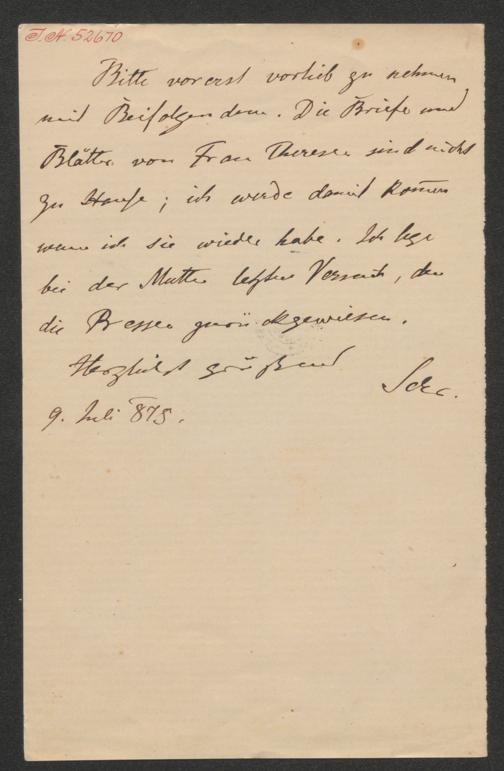 I. N. 52670
Bitte vorerst vorlieb zu nehmen
mit Beifolgendem. Die Briefe und
Blätter von Frau Therese sind nicht
zu Hause; ich werde damit kom̄en
wenn ich sie wieder habe. Ich lege
bei der Mutter letzten Versuch, den
die Presse zurückgewiesen.
Herzlichst grüßend
9. Juli 875.